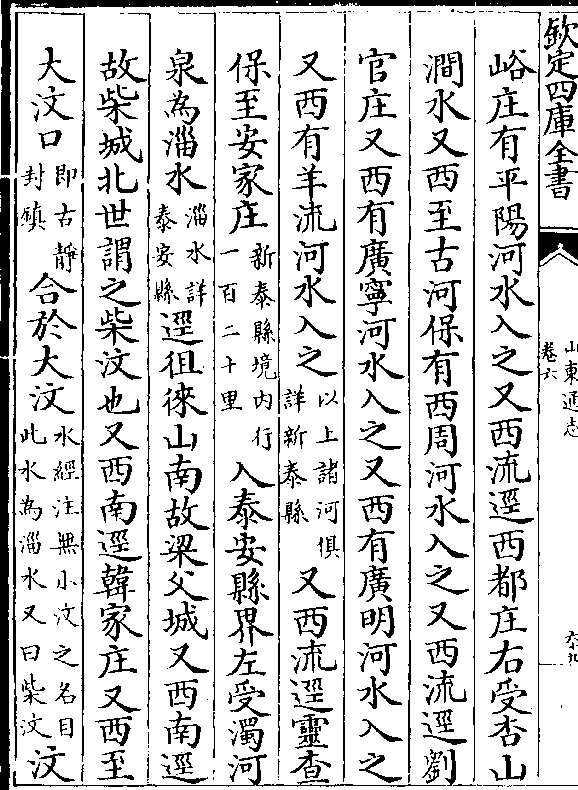 欽定四庫全書
山東通志
卷六
峪庄有平陽河水入之又西流逕西都庄右受杏山
澗水又西至古河保有西周河水入之又西流逕劉
官庄又西有廣寧河水入之又西有廣明河水入之
又西有羊流河水入之以上諸河俱詳新泰縣又西流逕靈查
保至安家庄新泰縣境内行一百二十里入泰安縣界左受濁河
泉為淄水淄水詳泰安縣逕徂徠山南故梁父城又西南逕
故柴城北世謂之柴汶也又西南逕韓家庄又西至
大汶口即古靜封鎮合於大汶水經注無小汶之名目此水為淄水又曰柴汶汶